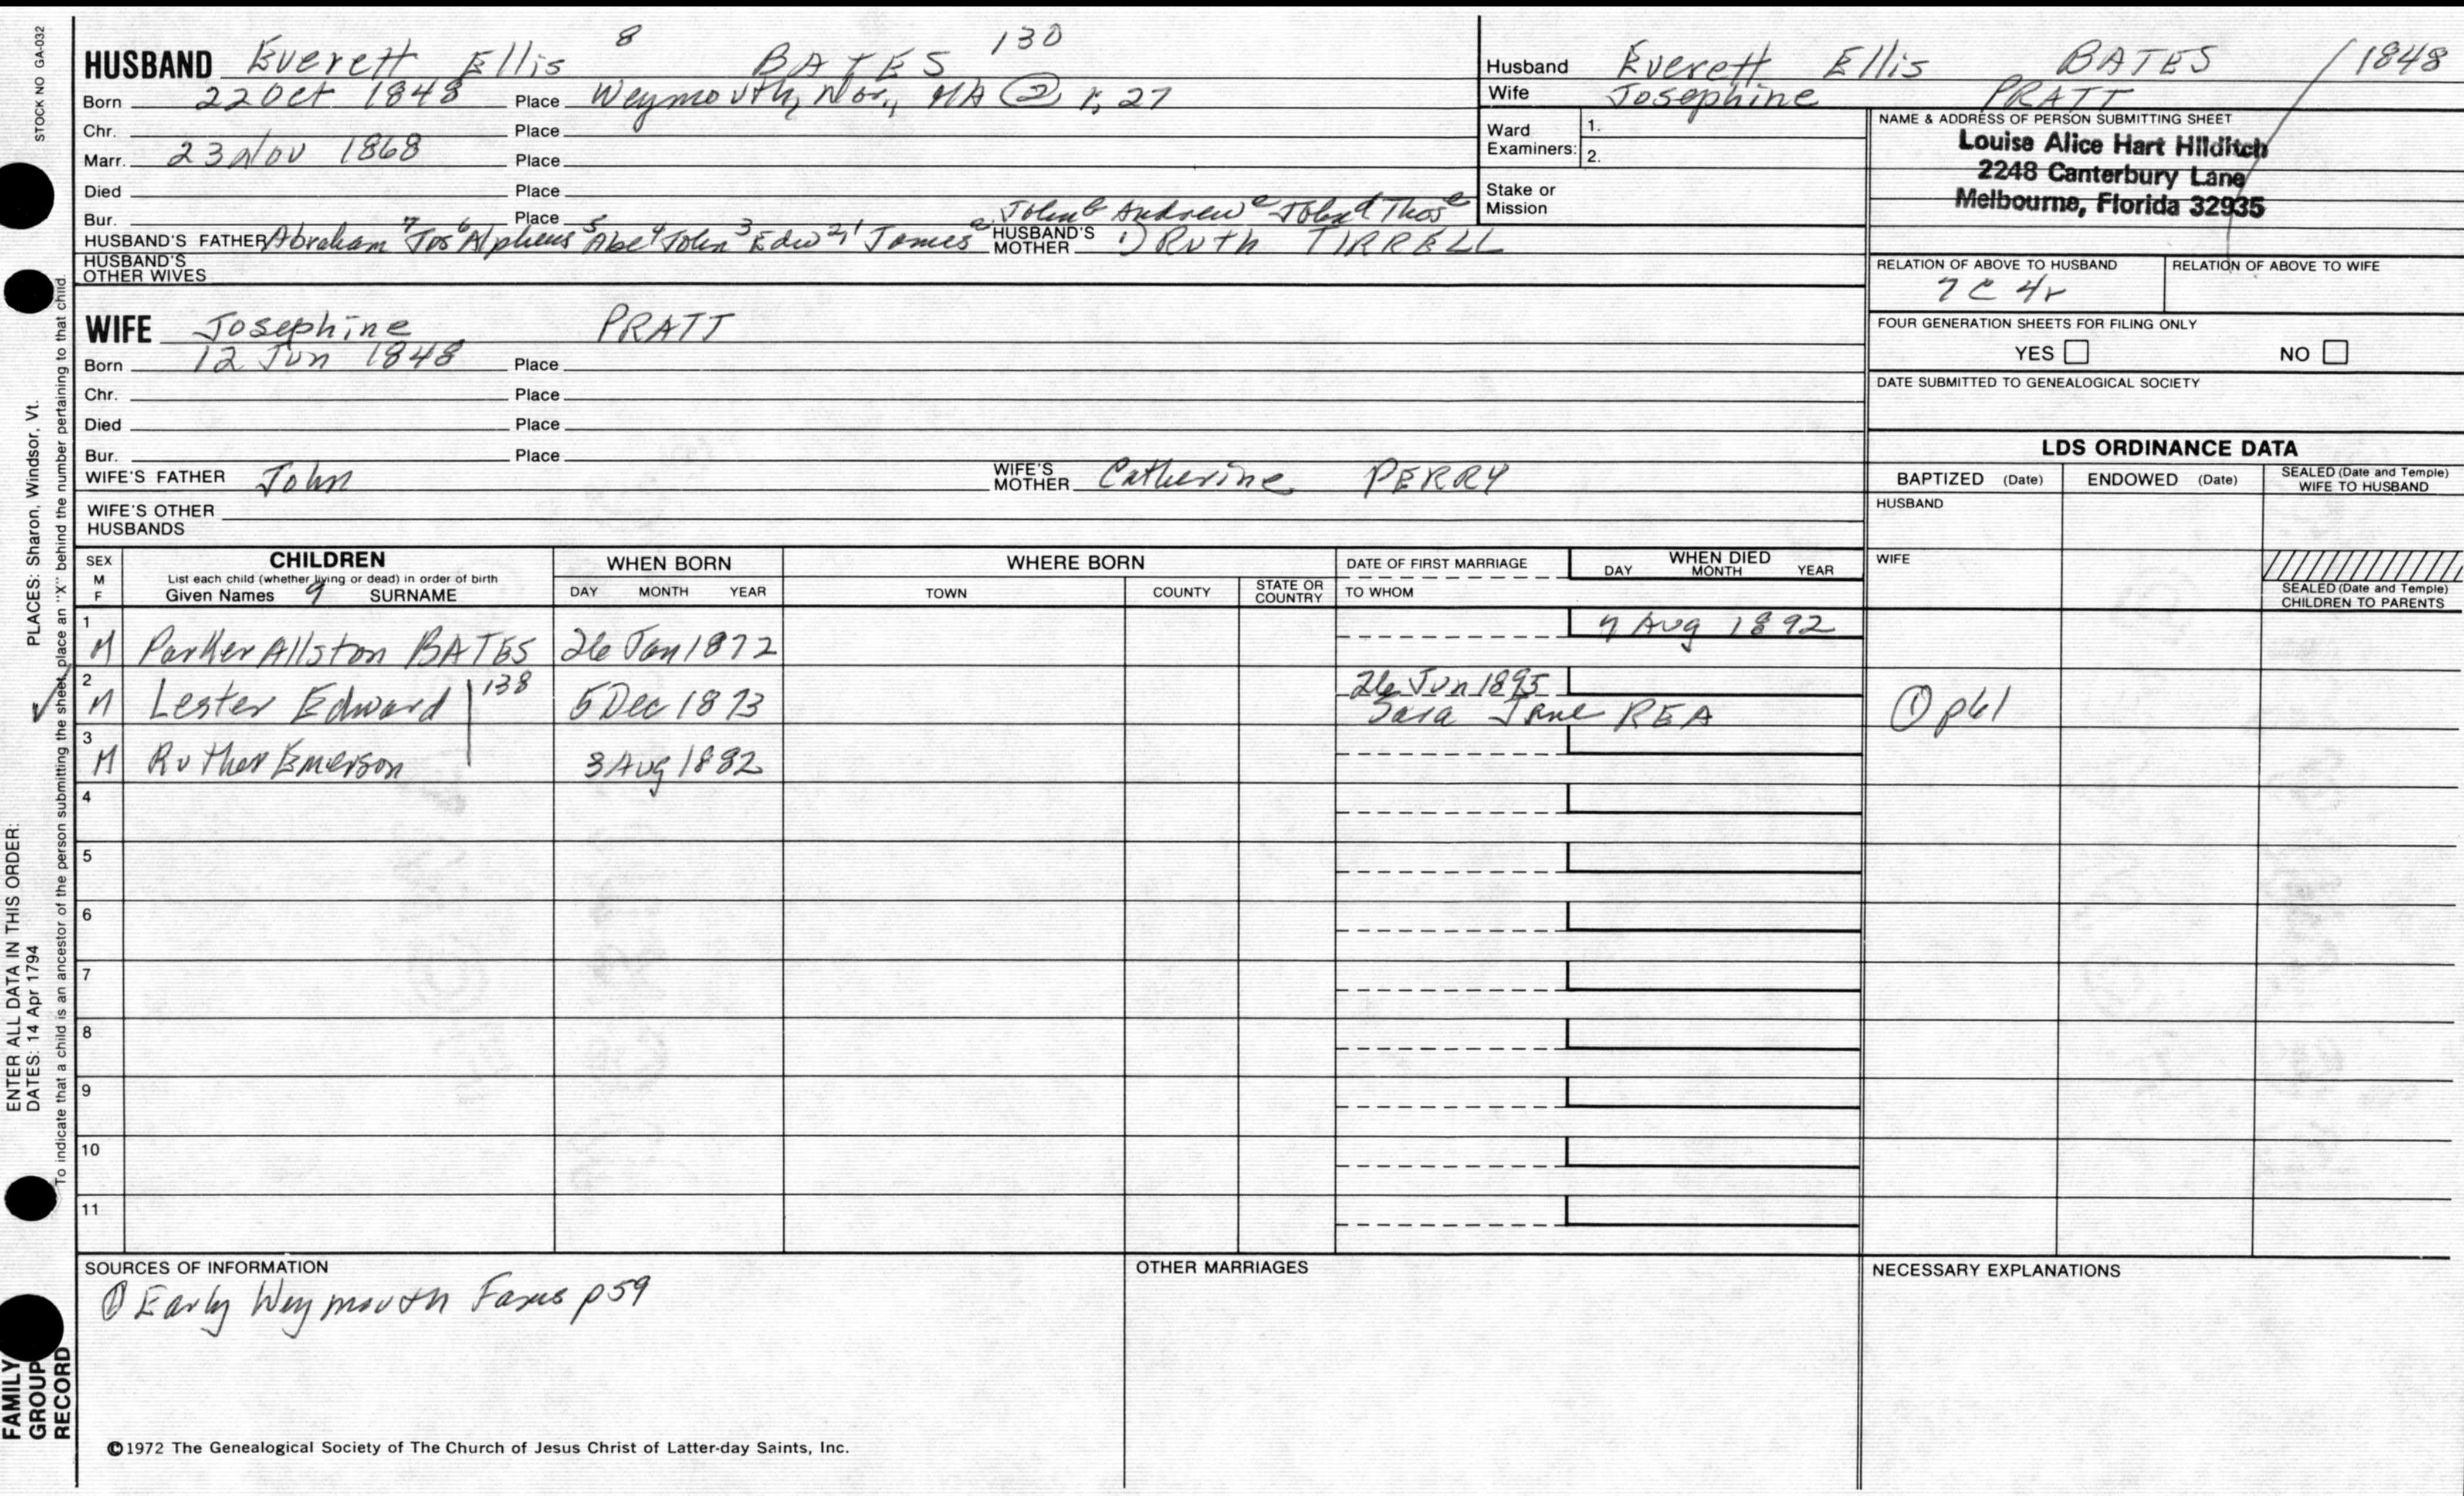 STOCK NO GA-032
HUSBAND Everett Ellis 8 BATES 130
Born 22 Oct 1848 Place Weymouth, Nor., MA ② 1, 27
Chr. Place
Marr. 23 Nov 1868 Place
Died Place
Bur. Place
John b Andrew c John d Thos e
HUSBAND'S FATHER Abraham 7 Jos 6 Alpheus 5 Abe 4 John 3 Edw 2, 1 James a HUSBAND'S MOTHER 1) Ruth TIRRELL
HUSBAND'S OTHER WIVES
WIFE Josephine PRATT
Born 12 Jun 1848 Place
Chr. Place
Died Place
Bur. Place
WIFE'S FATHER John WIFE'S MOTHER Catherine PERRY
WIFE'S OTHER HUSBANDS
Husband Everett Ellis BATES / 1848
Wife Josephine PRATT
Ward Examiners: 1.
2.
Stake or Mission
NAME & ADDRESS OF PERSON SUBMITTING SHEET
Louise Alice Hart Hilditch
2248 Canterbury Lane
Melbourne, Florida 32935
RELATION OF ABOVE TO HUSBAND RELATION OF ABOVE TO WIFE
7C 4r
FOUR GENERATION SHEETS FOR FILING ONLY
YES NO
DATE SUBMITTED TO GENEALOGICAL SOCIETY
LDS ORDINANCE DATA
BAPTIZED (Date) ENDOWED (Date) SEALED (Date and Temple) WIFE TO HUSBAND
HUSBAND
WIFE
SEALED (Date and Temple) CHILDREN TO PARENTS
SEX M F CHILDREN WHEN BORN WHERE BORN DATE OF FIRST MARRIAGE WHEN DIED
List each child (whether living or dead) in order of birth
Given Names 9 SURNAME DAY MONTH YEAR TOWN COUNTY STATE OR COUNTRY TO WHOM DAY MONTH YEAR
1 M Parker Allston BATES 26 Jan 1872 9 Aug 1892
2 M Lester Edward 138 5 Dec 1873 26 Jun 1895 Sara Jane REA ① p61
3 M Ruther Emerson 3 Aug 1882
4
5
6
7
8
9
10
11
SOURCES OF INFORMATION
① Early Weymouth Fams p59
OTHER MARRIAGES
NECESSARY EXPLANATIONS
©1972 The Genealogical Society of The Church of Jesus Christ of Latter-day Saints, Inc.
ENTER ALL DATA IN THIS ORDER:
DATES: 14 Apr 1794 PLACES: Sharon, Windsor, Vt.
To indicate that a child is an ancestor of the person submitting the sheet, place an "X" behind the number pertaining to that child.
FAMILY
GROUP
RECORD